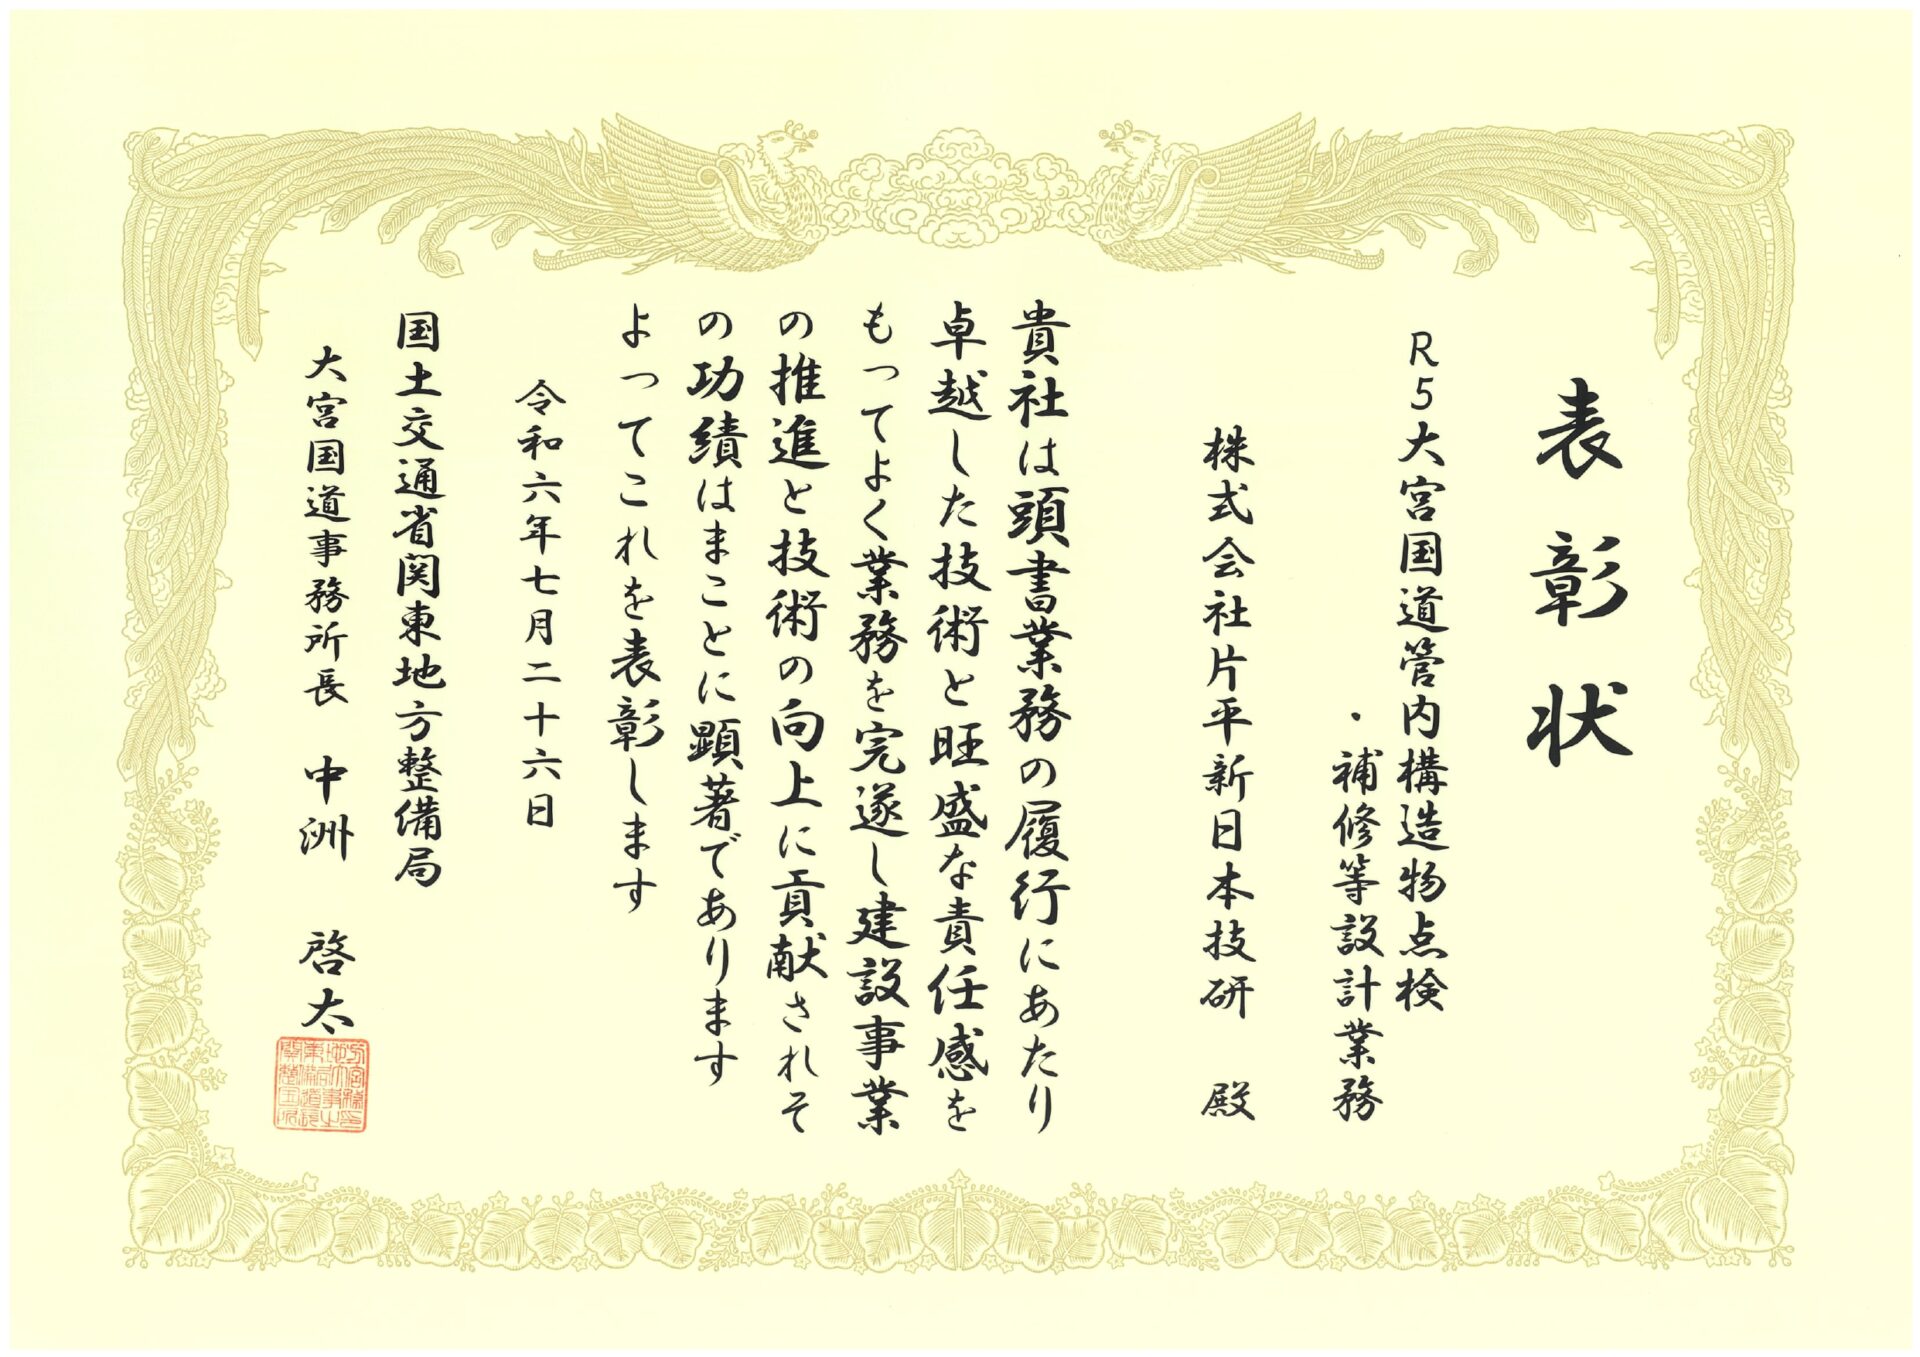 表彰状
R5大宮国道管内構造物点検
・補修等設計業務
株式会社片平新日本技研 殿
貴社は頭書業務の履行にあたり
卓越した技術と旺盛な責任感を
もってよく業務を完遂し建設事業
の推進と技術の向上に貢献されそ
の功績はまことに顕著であります
よってこれを表彰します
令和六年七月二十六日
国土交通省関東地方整備局
大宮国道事務所長 中洲 啓太